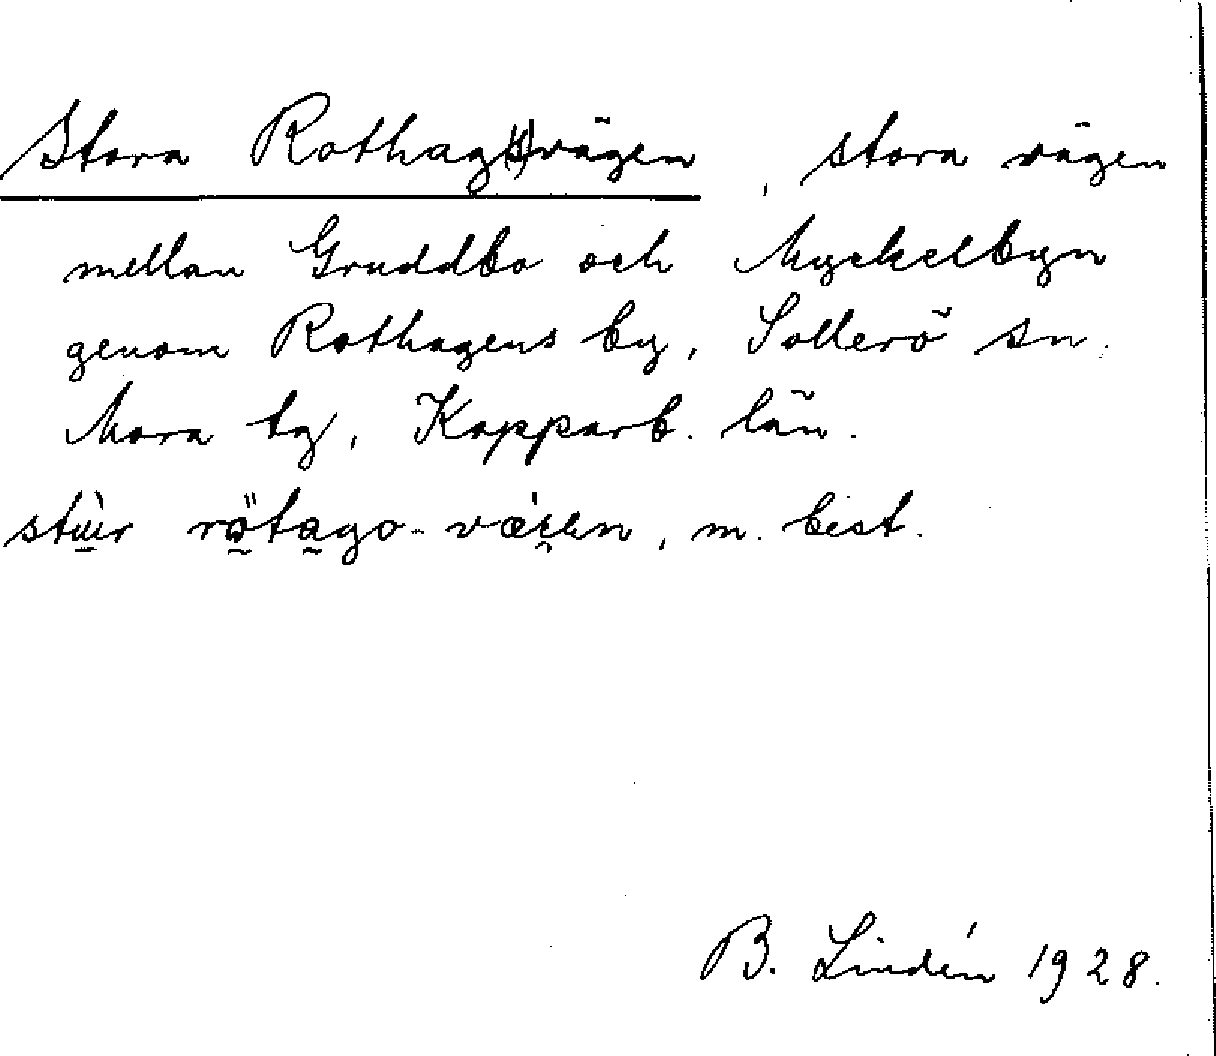 Stora Rothag(s)vägen, stora vägen
mellan Gruddbo och Myckelbyn
genom Rothagens by, Sollerö sn.
Mora tg, Kopparb. län.
stu̱̇̀r rö̰ta̰go-væ̀i̯en, m. best.
B. Lindén 1928.